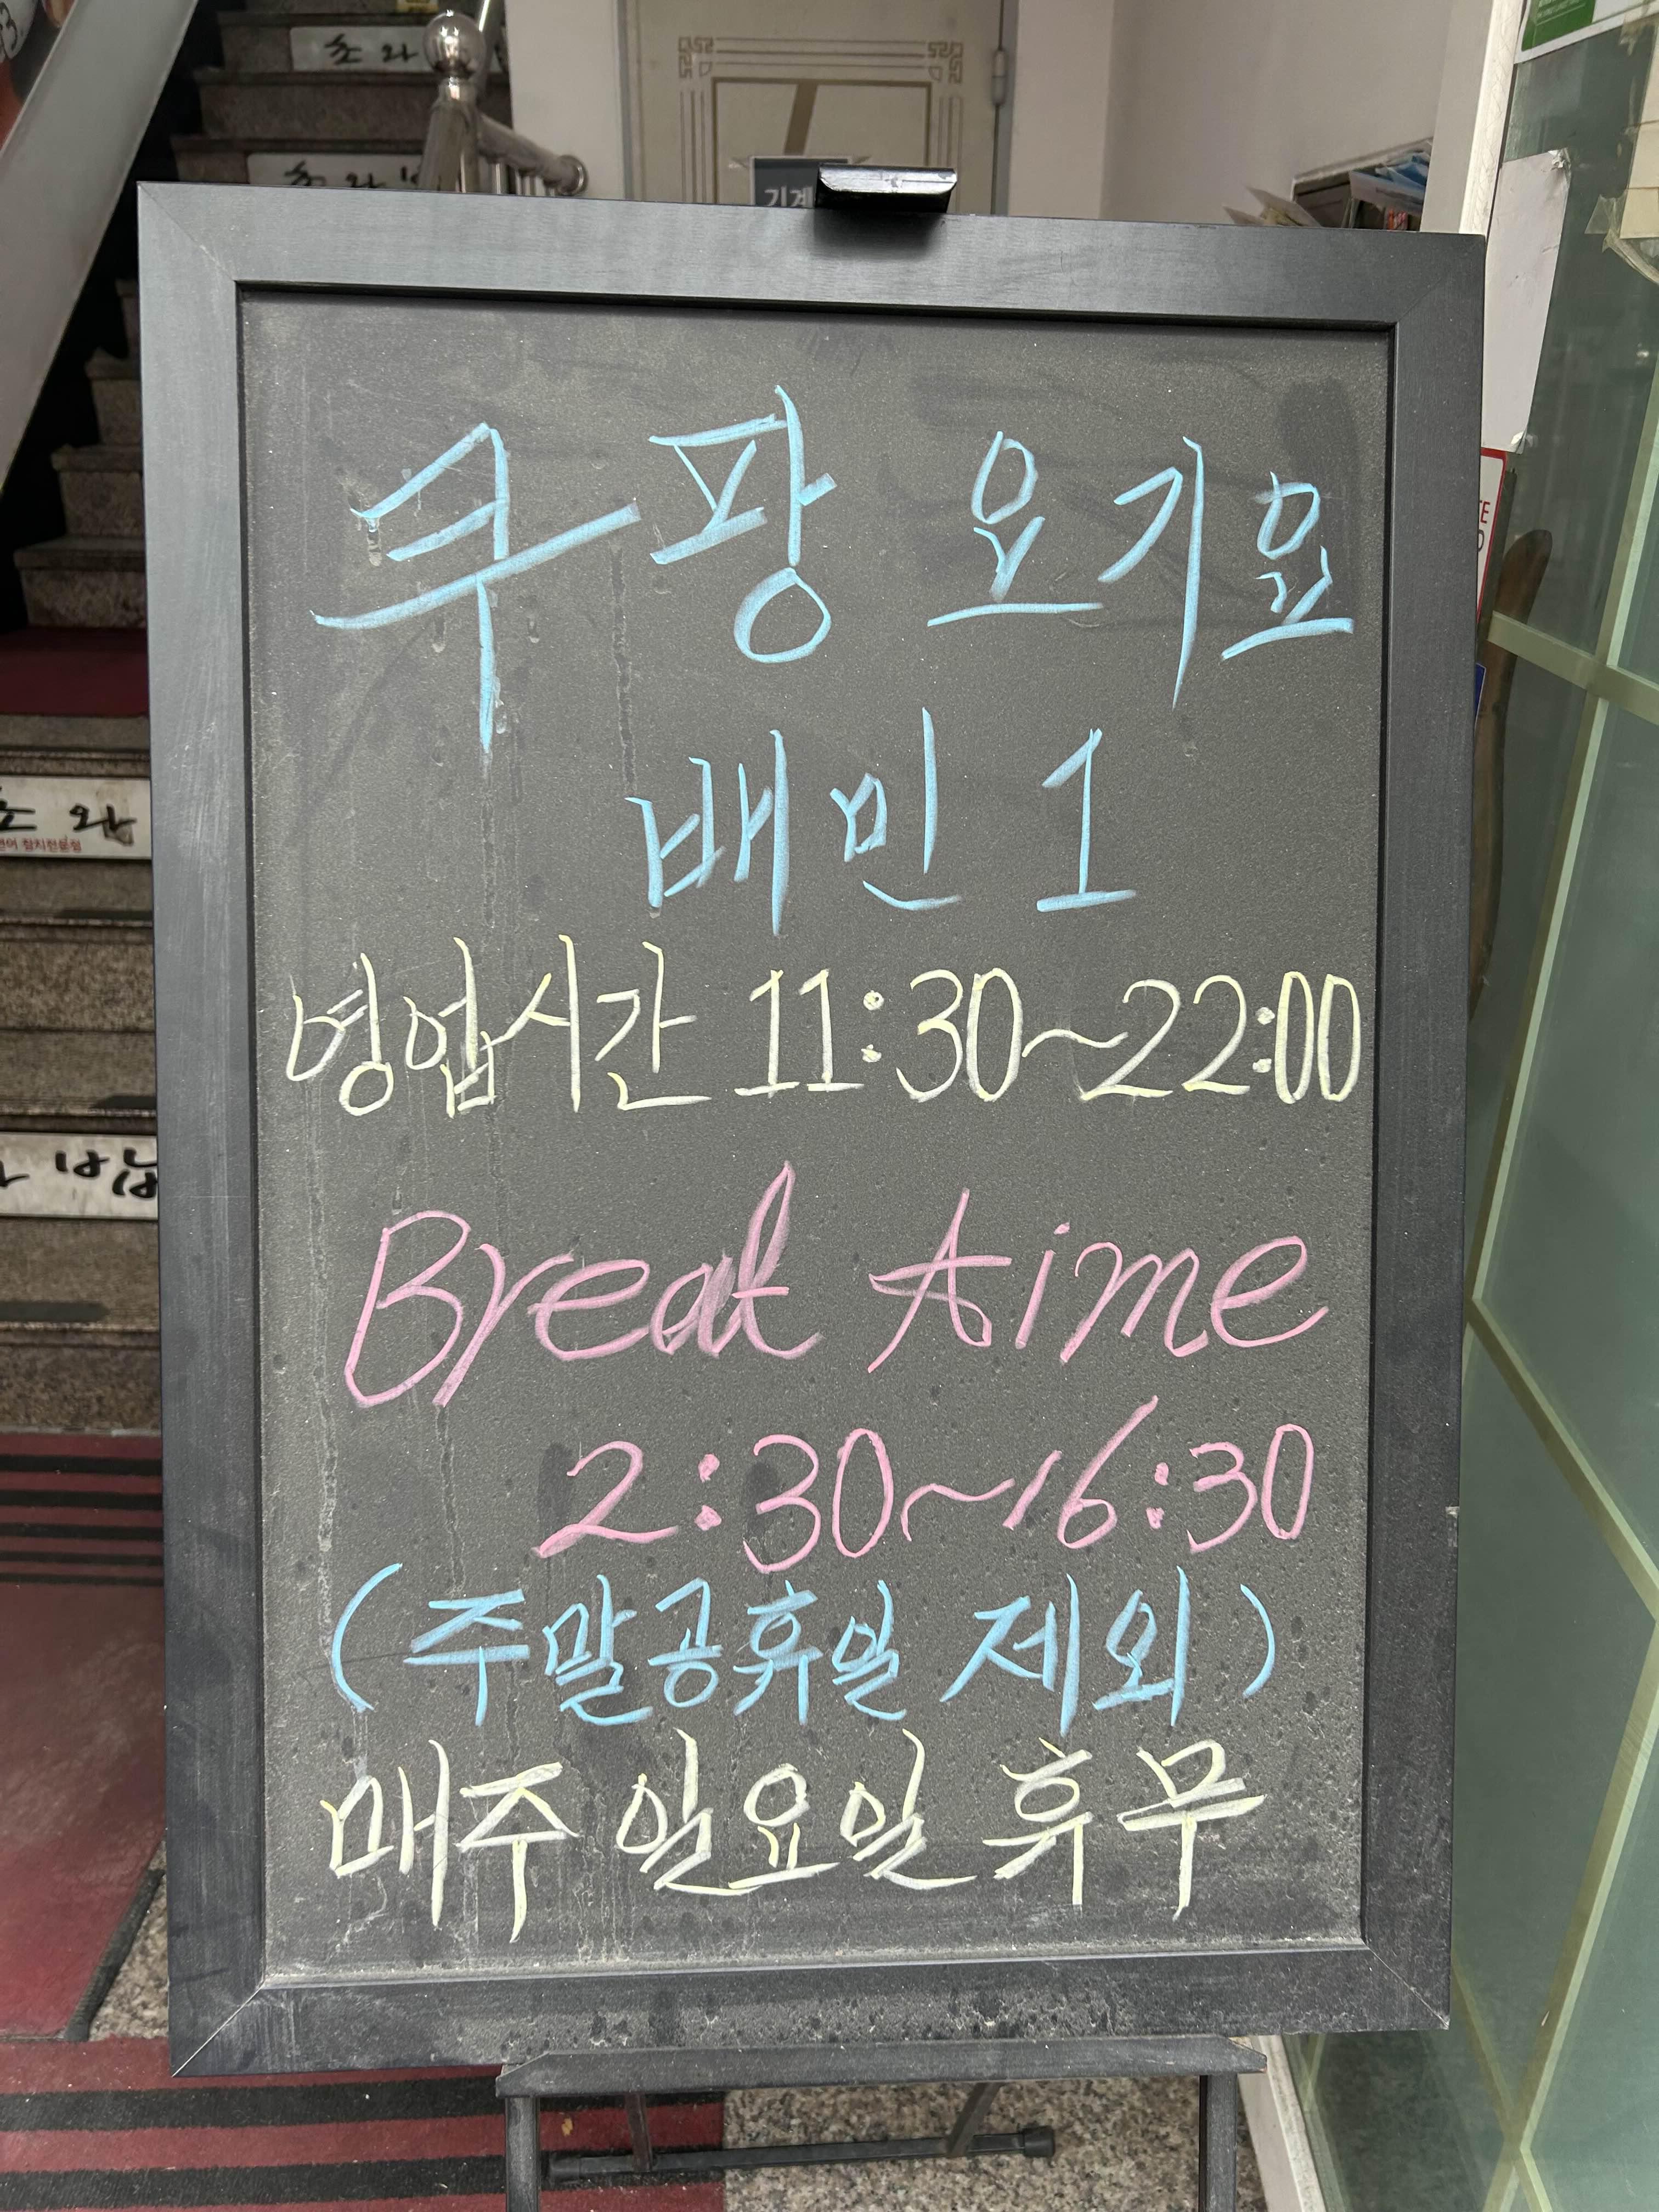 초와
초와
기계
쿠팡 요기요
배민 1
영업시간 11:30~22:00
Break time
2:30~16:30
(주말공휴일 제외)
매주 일요일 휴무
초와
참치전문점